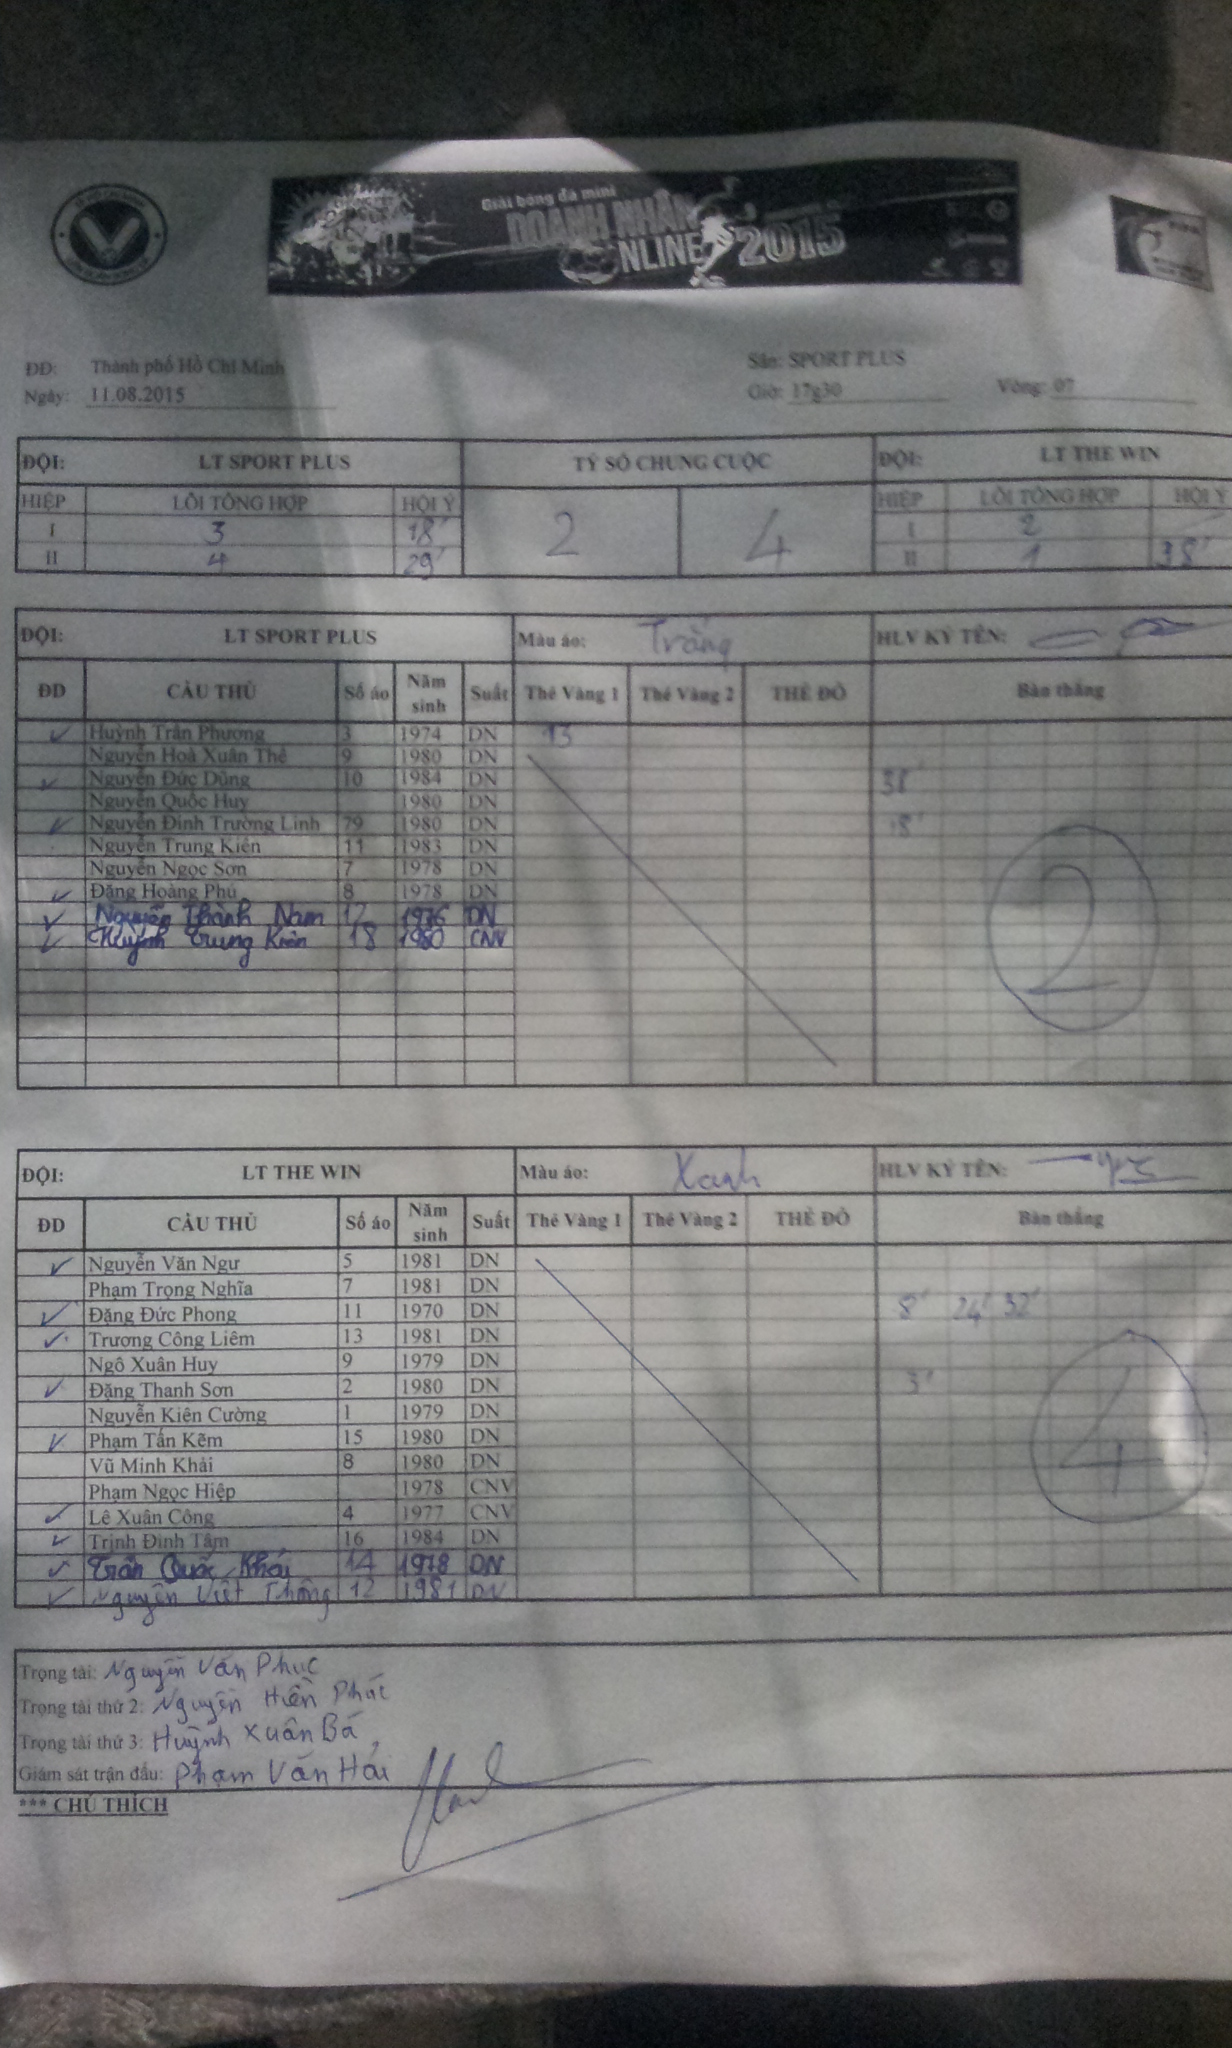 Giải bóng đá mini
DOANH NHÂN
NLINE 2015
ĐD: Thành phố Hồ Chí Minh Sân: SPORT PLUS
Ngày: 11.08.2015 Giờ: 17g30 Vòng: 07
ĐỘI: LT SPORT PLUS TỶ SỐ CHUNG CUỘC ĐỘI: LT THE WIN
HIỆP LỖI TỔNG HỢP HỘI Ý 2 4 HIỆP LỖI TỔNG HỢP HỘI Ý
I 3 18' I 2
II 4 29' II 1 38'
ĐỘI: LT SPORT PLUS Màu áo: Trắng HLV KÝ TÊN:
ĐD CẦU THỦ Số áo Năm sinh Suất Thẻ Vàng 1 Thẻ Vàng 2 THẺ ĐỎ Bàn thắng
Huỳnh Trần Phương 3 1974 DN 13
Nguyễn Hoà Xuân Thể 9 1980 DN
Nguyễn Đức Dũng 10 1984 DN
Nguyễn Quốc Huy 1980 DN
Nguyễn Đình Trường Linh 79 1980 DN
Nguyễn Trung Kiên 11 1983 DN
Nguyễn Ngọc Sơn 7 1978 DN
Đặng Hoàng Phú 8 1978 DN
Nguyễn Thành Nam 12 1976 DN
Huỳnh Trung Kiên 18 1980 CNV
2
ĐỘI: LT THE WIN Màu áo: Xanh HLV KÝ TÊN:
ĐD CẦU THỦ Số áo Năm sinh Suất Thẻ Vàng 1 Thẻ Vàng 2 THẺ ĐỎ Bàn thắng
Nguyễn Văn Ngư 5 1981 DN
Phạm Trọng Nghĩa 7 1981 DN
Đặng Đức Phong 11 1970 DN 8' 24' 32'
Trương Công Liêm 13 1981 DN
Ngô Xuân Huy 9 1979 DN
Đặng Thanh Sơn 2 1980 DN 3'
Nguyễn Kiên Cường 1 1979 DN
Phạm Tấn Kẽm 15 1980 DN
Vũ Minh Khải 8 1980 DN
Phạm Ngọc Hiệp 1978 CNV
Lê Xuân Công 4 1977 CNV
Trịnh Đình Tâm 16 1984 DN
Trần Quốc Khải 14 1978 DN
Nguyễn Viết Thông 12 1981 DN
4
Trọng tài: Nguyễn Văn Phuc
Trọng tài thứ 2: Nguyễn Hiền Phúc
Trọng tài thứ 3: Huỳnh Xuân Bá
Giám sát trận đấu: Phạm Văn Hải
*** CHÚ THÍCH